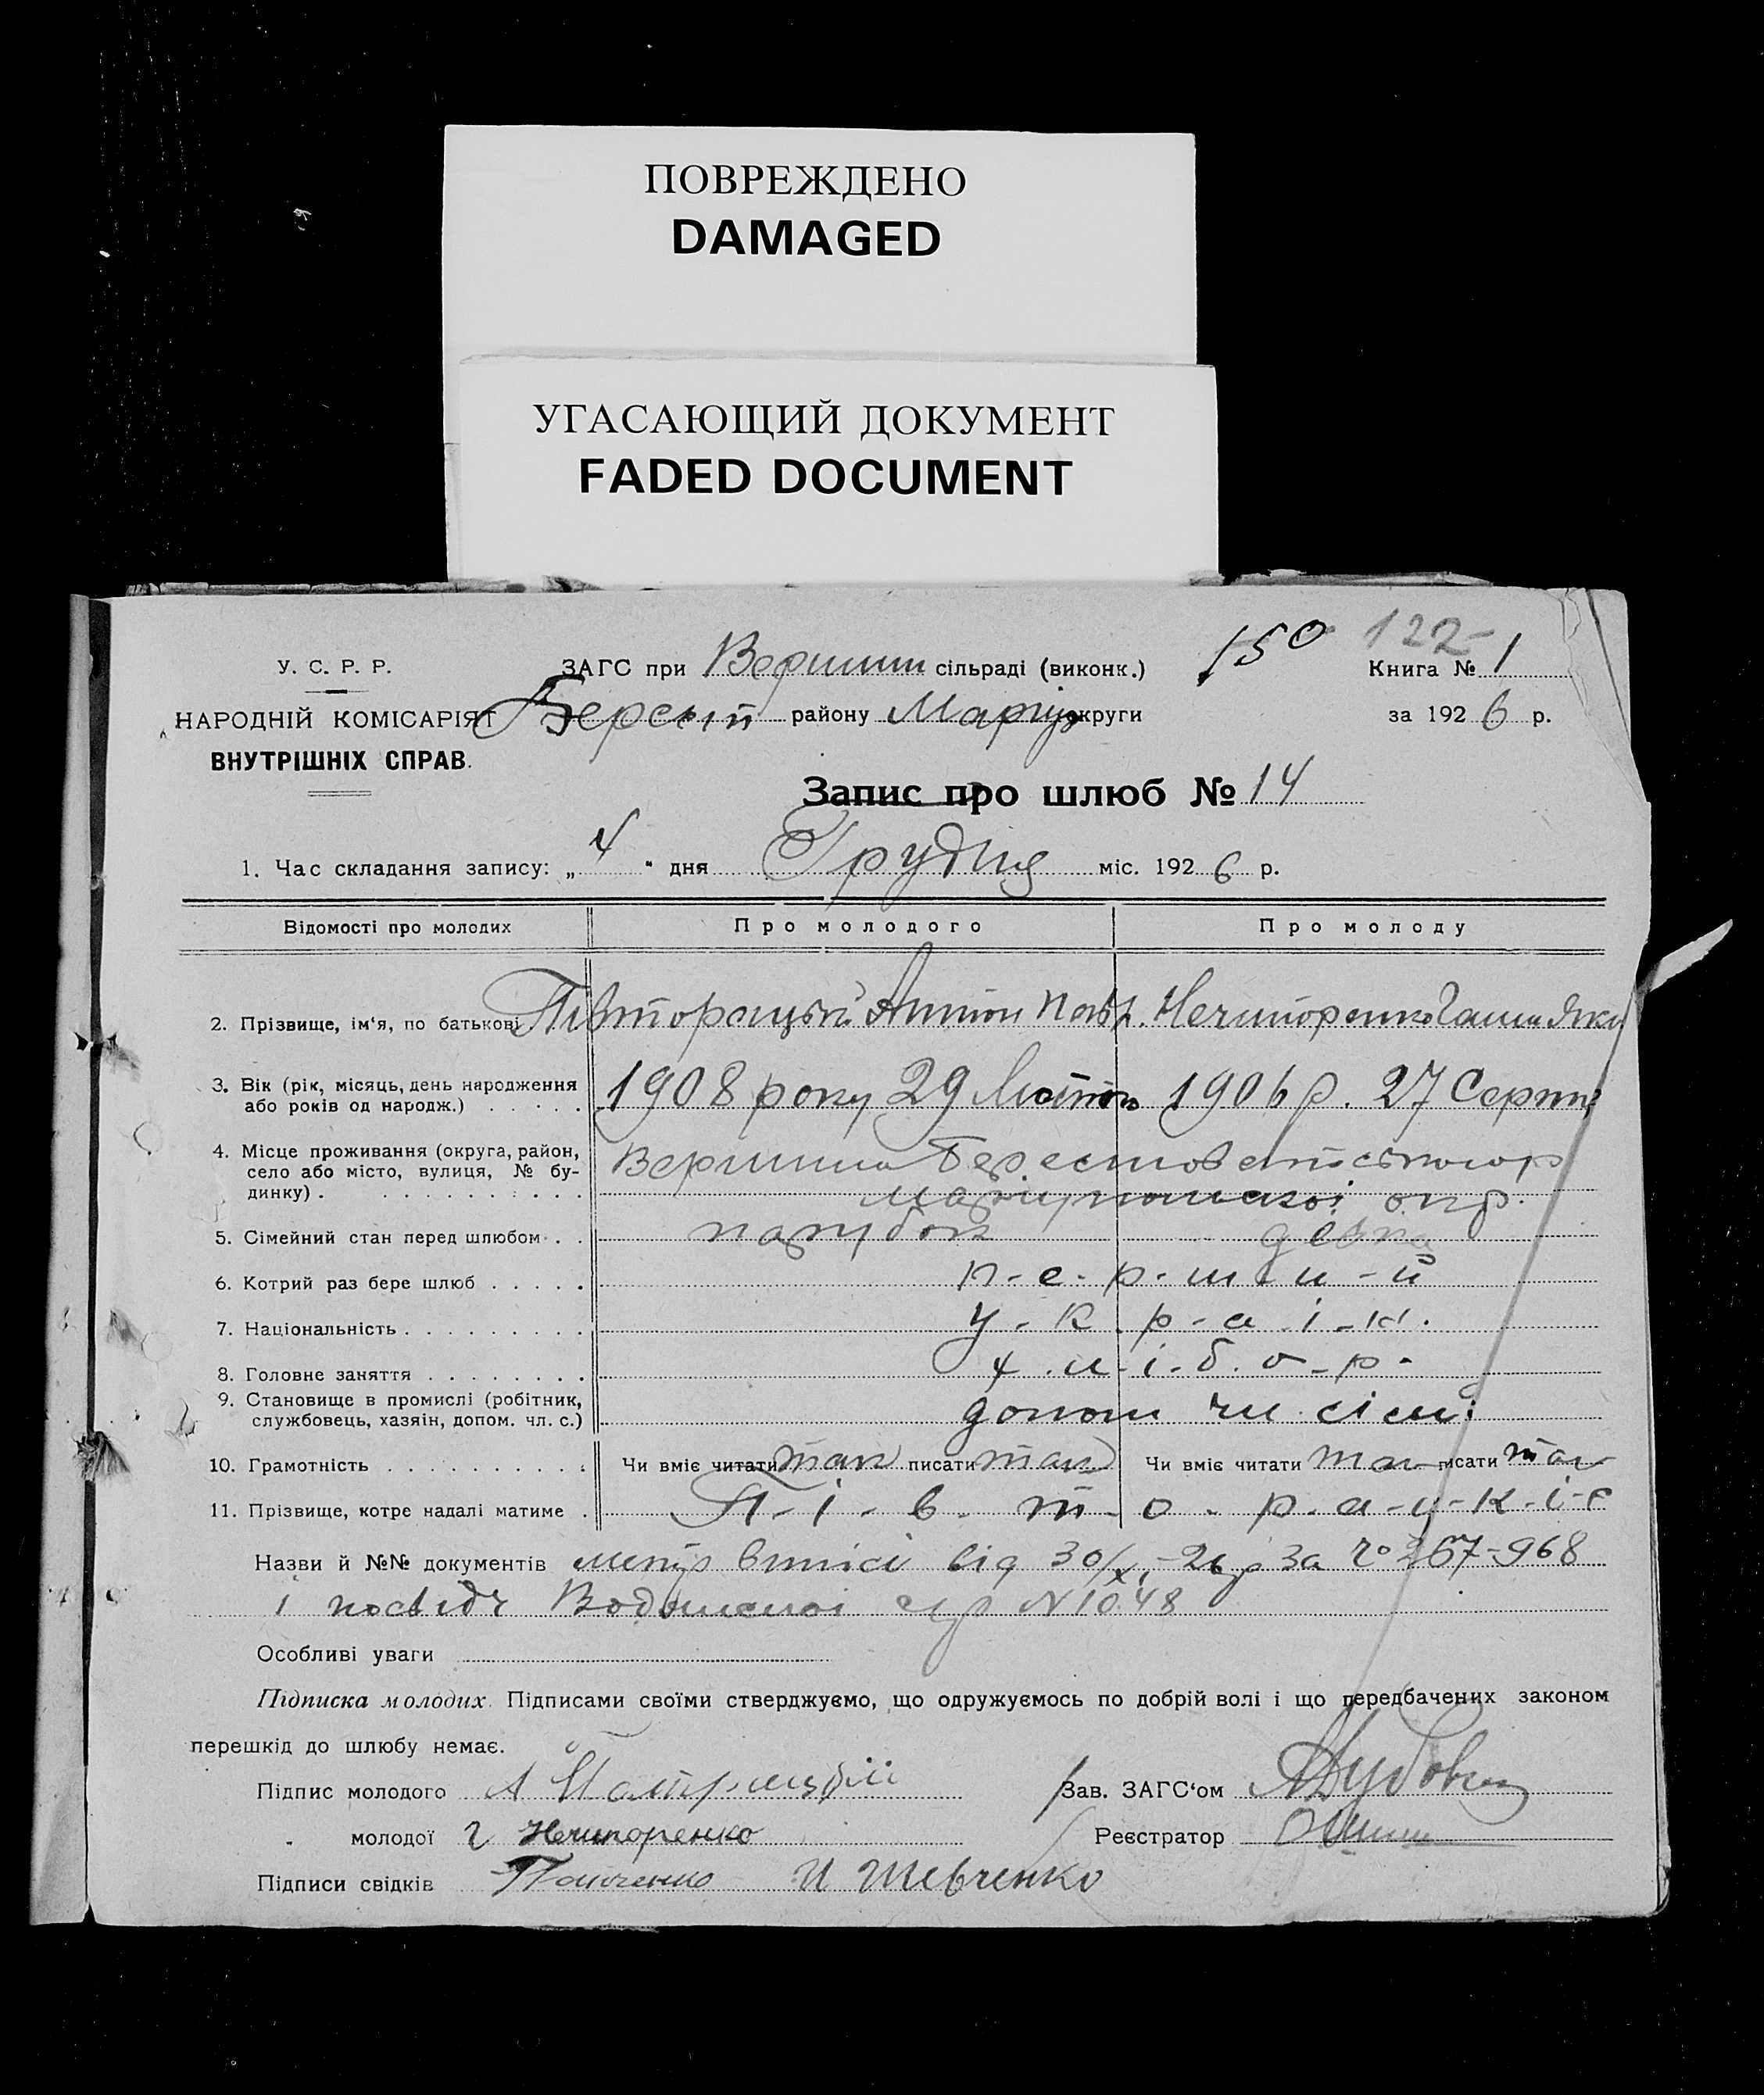 ПОВРЕЖДЕНО
DAMAGED
УГАСАЮЩИЙ ДОКУМЕНТ
FADED DOCUMENT
150 122
У. С. Р. Р. ЗАГС при Вершин сільраді (виконк.) Книга № 1
НАРОДНІЙ КОМІСАРІЯТ району Маріуп округи за 1926 р.
ВНУТРІШНІХ СПРАВ.
Запис про шлюб № 14
1. Час складання запису: „4“ дня Грудня міс. 1926 р.
Відомості про молодих Про молодого Про молоду
2. Прізвище, ім‘я, по батькові Півторацький Антон Павл. Нечипоренко Ганна Яки
3. Вік (рік, місяць, день народження 1908 року 29 Лютого 1906 р. 27 Серпня
або років од народж.)
4. Місце проживання (округа, район, Вершина Берестовенського р
село або місто, вулиця, № бу-
динку) Маріупольської окр.
5. Сімейний стан перед шлюбом парубок дівка
6. Котрий раз бере шлюб п-е-р-ш-и-й
7. Національність у-к-р-а-ї-н.
8. Головне заняття х-л-і-б-о-р-
9. Становище в промислі (робітник,
службовець, хазяїн, допом. чл. с.) допом чл. сімї
10. Грамотність Чи вміє читати так писати так Чи вміє читати так писати так
11. Прізвище, котре надалі матиме П-і-в-т-о-р-а-ц-к-і-є
Назви й №№ документів метр виписі від 30/XI-26 р за № 967-968
і посвідч с/р N 1048
Особливі уваги
Підписка молодих. Підписами своїми стверджуємо, що одружуємось по добрій волі і що передбачених законом
перешкід до шлюбу немає.
Підпис молодого А Зав. ЗАГС‘ом
молодої Г Нечипоренко Реєстратор
Підписи свідків И Шевченко